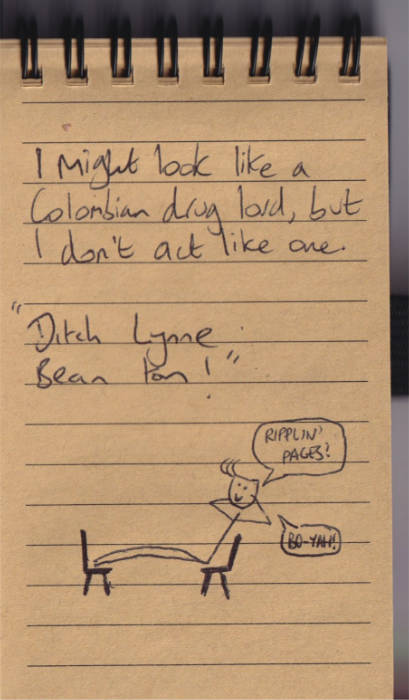 I might look like a
Colombian drug lord, but
I don't act like one.
"Ditch Lynne.
Bean !"
RIPPLIN'
PAGES?
BO-YAH!